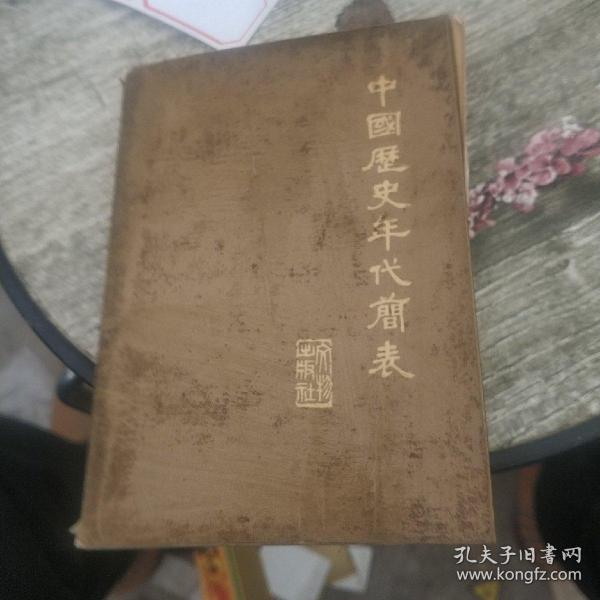 中國歷史年代簡表
文物
出版社
孔夫子旧书网
www.kongfz.com